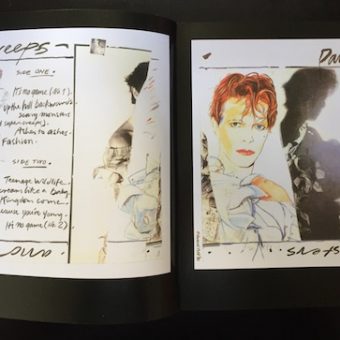 reeps
SIDE ONE.
It's no game (no. 1)
Up the hill backwards
scary monsters
(super creeps).
Ashes to ashes.
Fashion.
SIDE TWO.
Teenage Wildlife.
scream like a baby
Kingdom come.
because you're young.
It's no game (no. 2)
Da